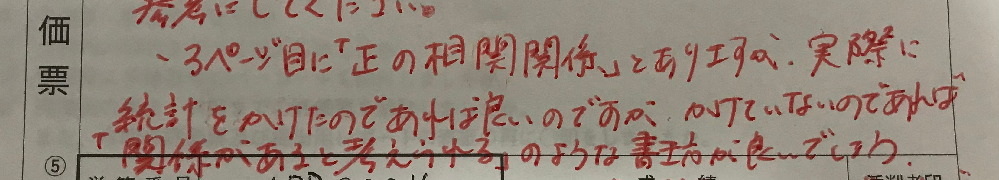 参考にしてください。
価票
・3ページ目に「正の相関関係」とありますが、実際に
統計をかけたのであれば良いのですが、かけていないのであれば
「関係があると考えられる」のような書き方が良いでしょう。
⑤